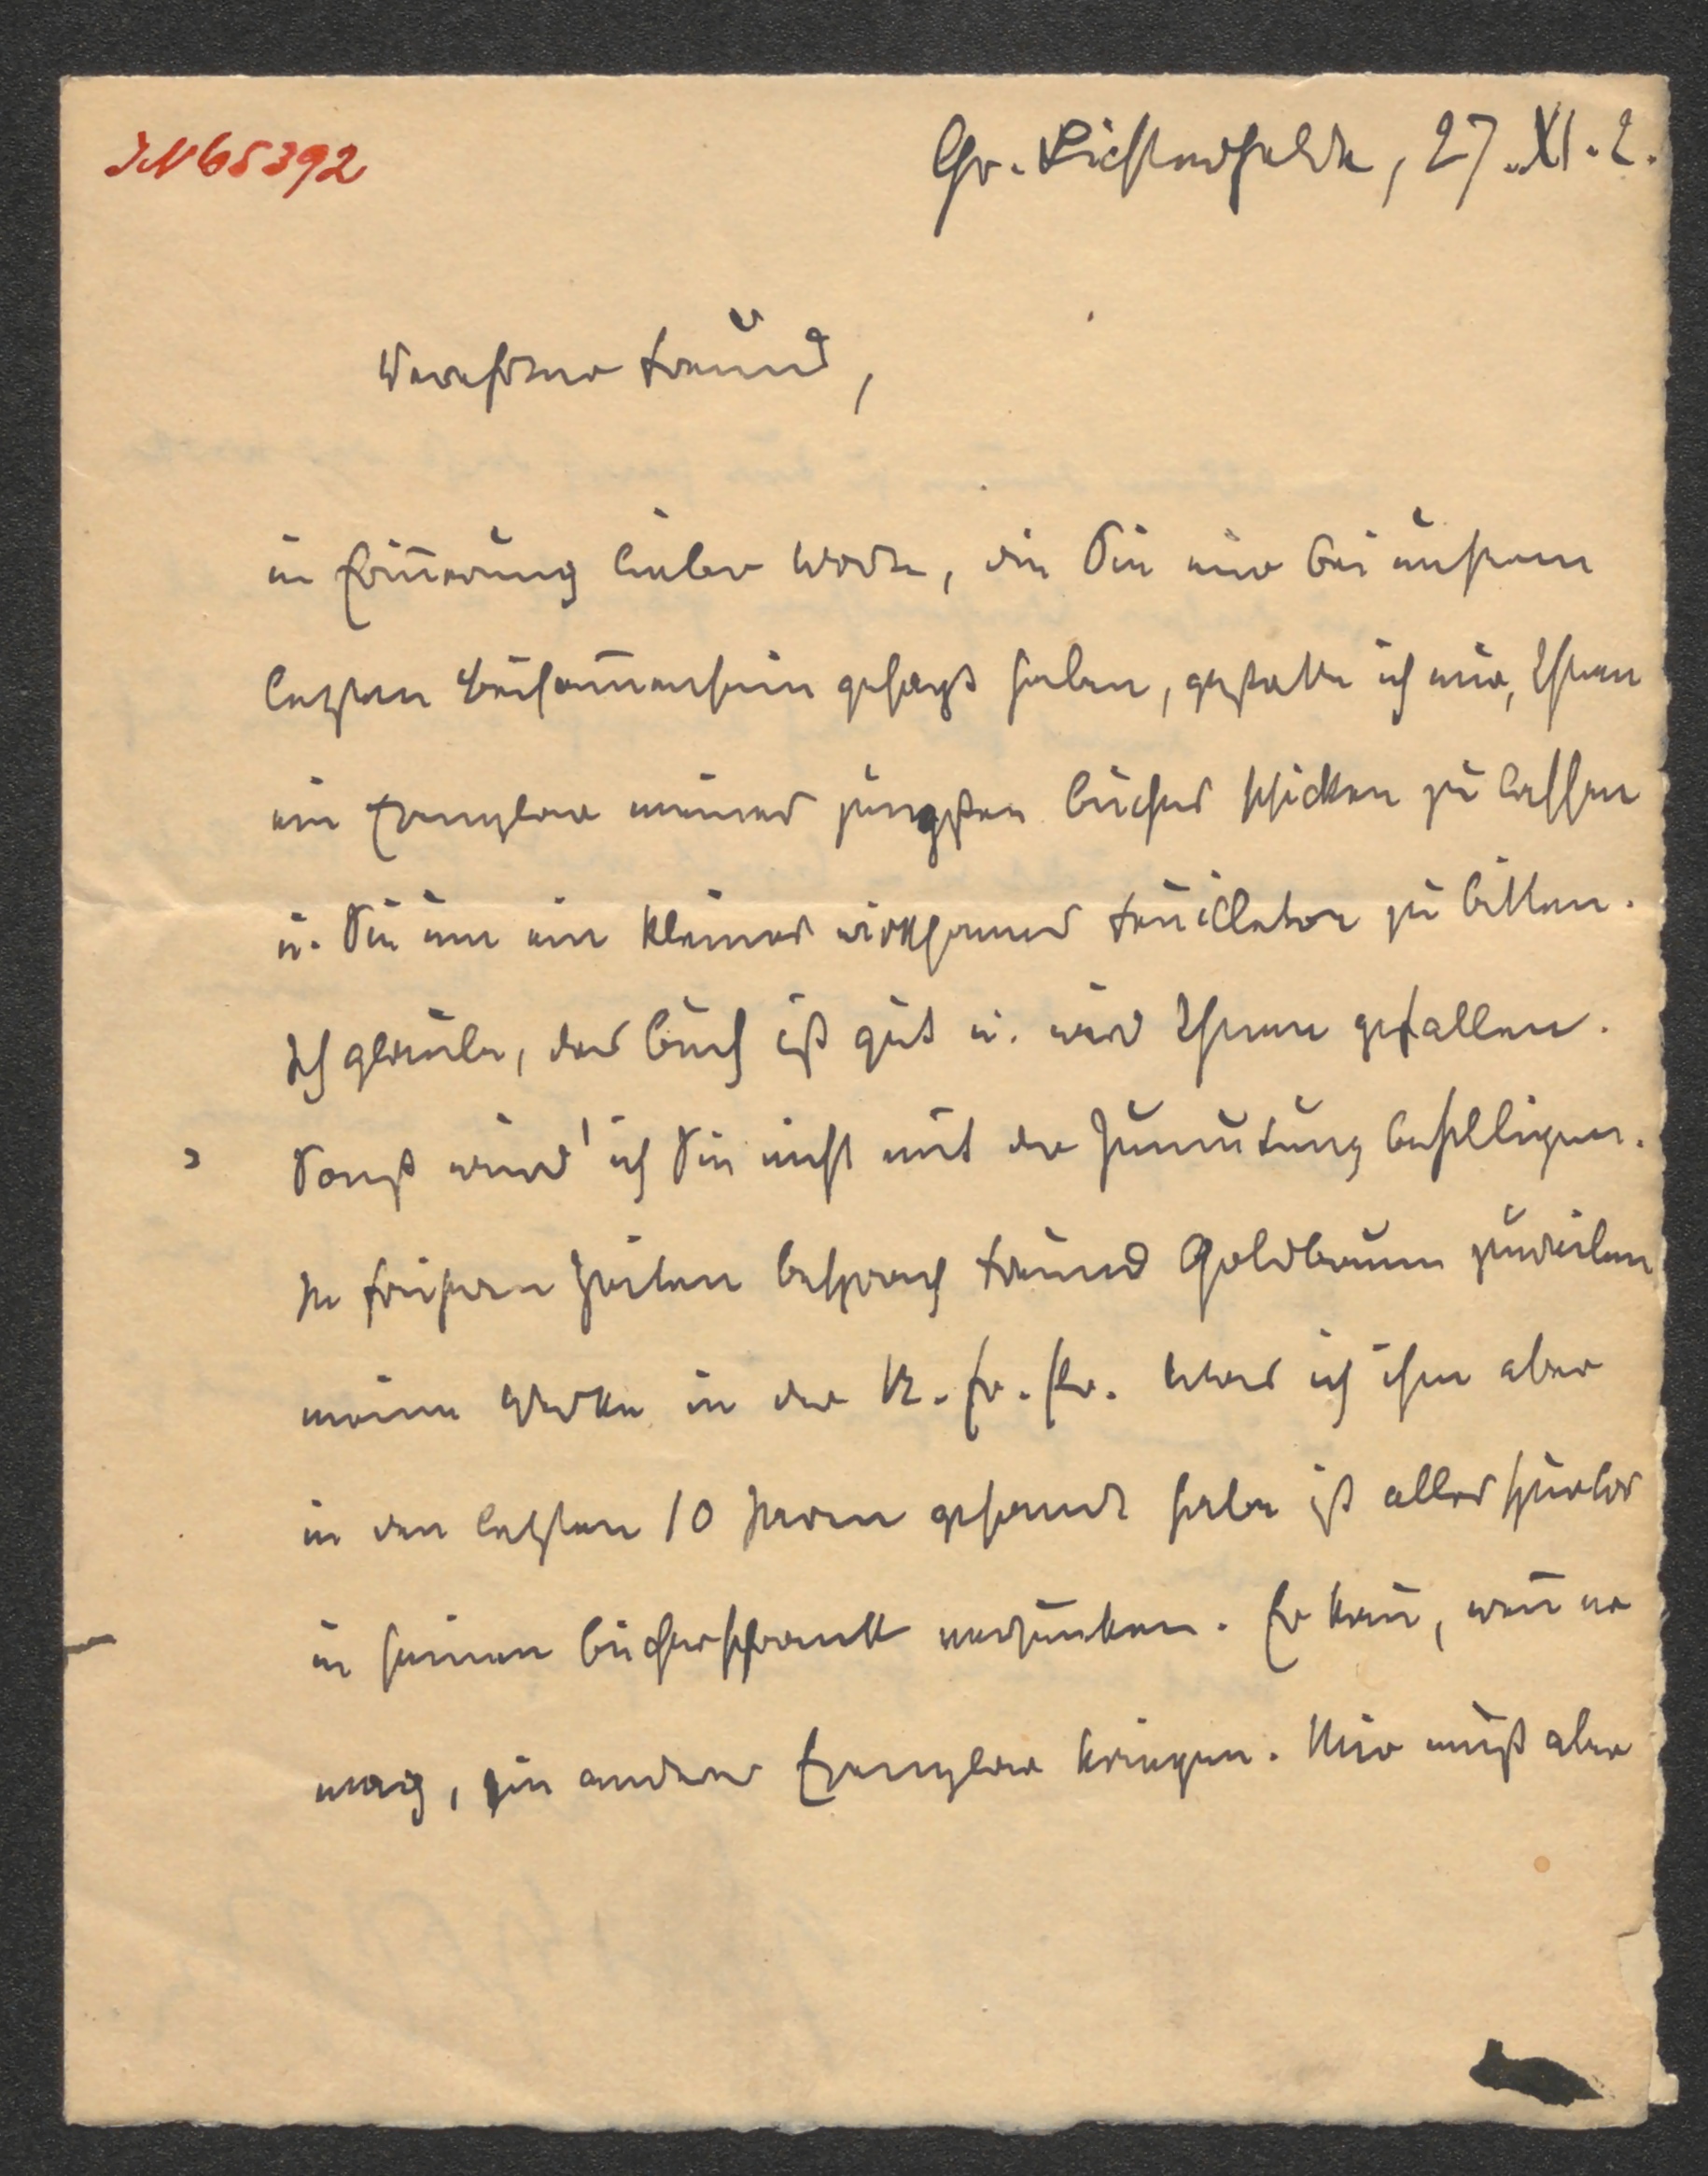 IN 65392
Gr. Lichterfelde, 27. XI. 2.
Verehrter Freund,
in Erinnerung lieber Worte, die Sie mir bei unserem
letzten Beisammensein gesagt haben, gestatte ich mir, Ihnen
ein Exemplar meines jüngsten Buches schicken zu lassen
u. Sie um ein kleines wirksames Feuilleton zu bitten.
Ich glaube, das Buch ist gut u. wird Ihnen gefallen.
Sonst würd' ich Sie nicht mit der Zumutung behelligen.
In früheren Zeiten besprach Freund Goldbaum zuweilen
meine Werke in der N. Fr. Pr. Was ich ihm aber
in den letzten 10 Jaren gesandt habe ist alles spurlos
in seinem Bücherschrank versunken. Er kann, wenn er
mag, ein anderes Exemplar kriegen. Mir muß aber